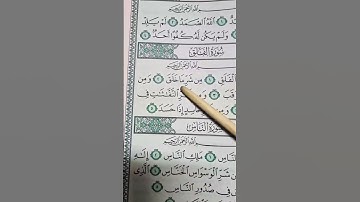 بِسْمِ اللَّهِ الرَّحْمَٰنِ الرَّحِيمِ
اللَّهُ الصَّمَدُ ٢ لَمْ يَلِدْ
وَلَمْ يَكُن لَّهُ كُفُوًا أَحَدٌ ٤
سُورَةُ الفَلَقِ
بِسْمِ اللَّهِ الرَّحْمَٰنِ الرَّحِيمِ
الْفَلَقِ ١ مِن شَرِّ مَا خَلَقَ ٢ وَمِن
وَقَبَ ٣ النَّفَّاثَاتِ فِي
إِذَا حَسَدَ ٥
سُورَةُ النَّاسِ
بِسْمِ اللَّهِ الرَّحْمَٰنِ الرَّحِيمِ
النَّاسِ ١ مَلِكِ النَّاسِ ٢ إِلَٰهِ
شَرِّ الْوَسْوَاسِ الْخَنَّاسِ ٤ الَّذِي
فِي صُدُورِ النَّاسِ ٥